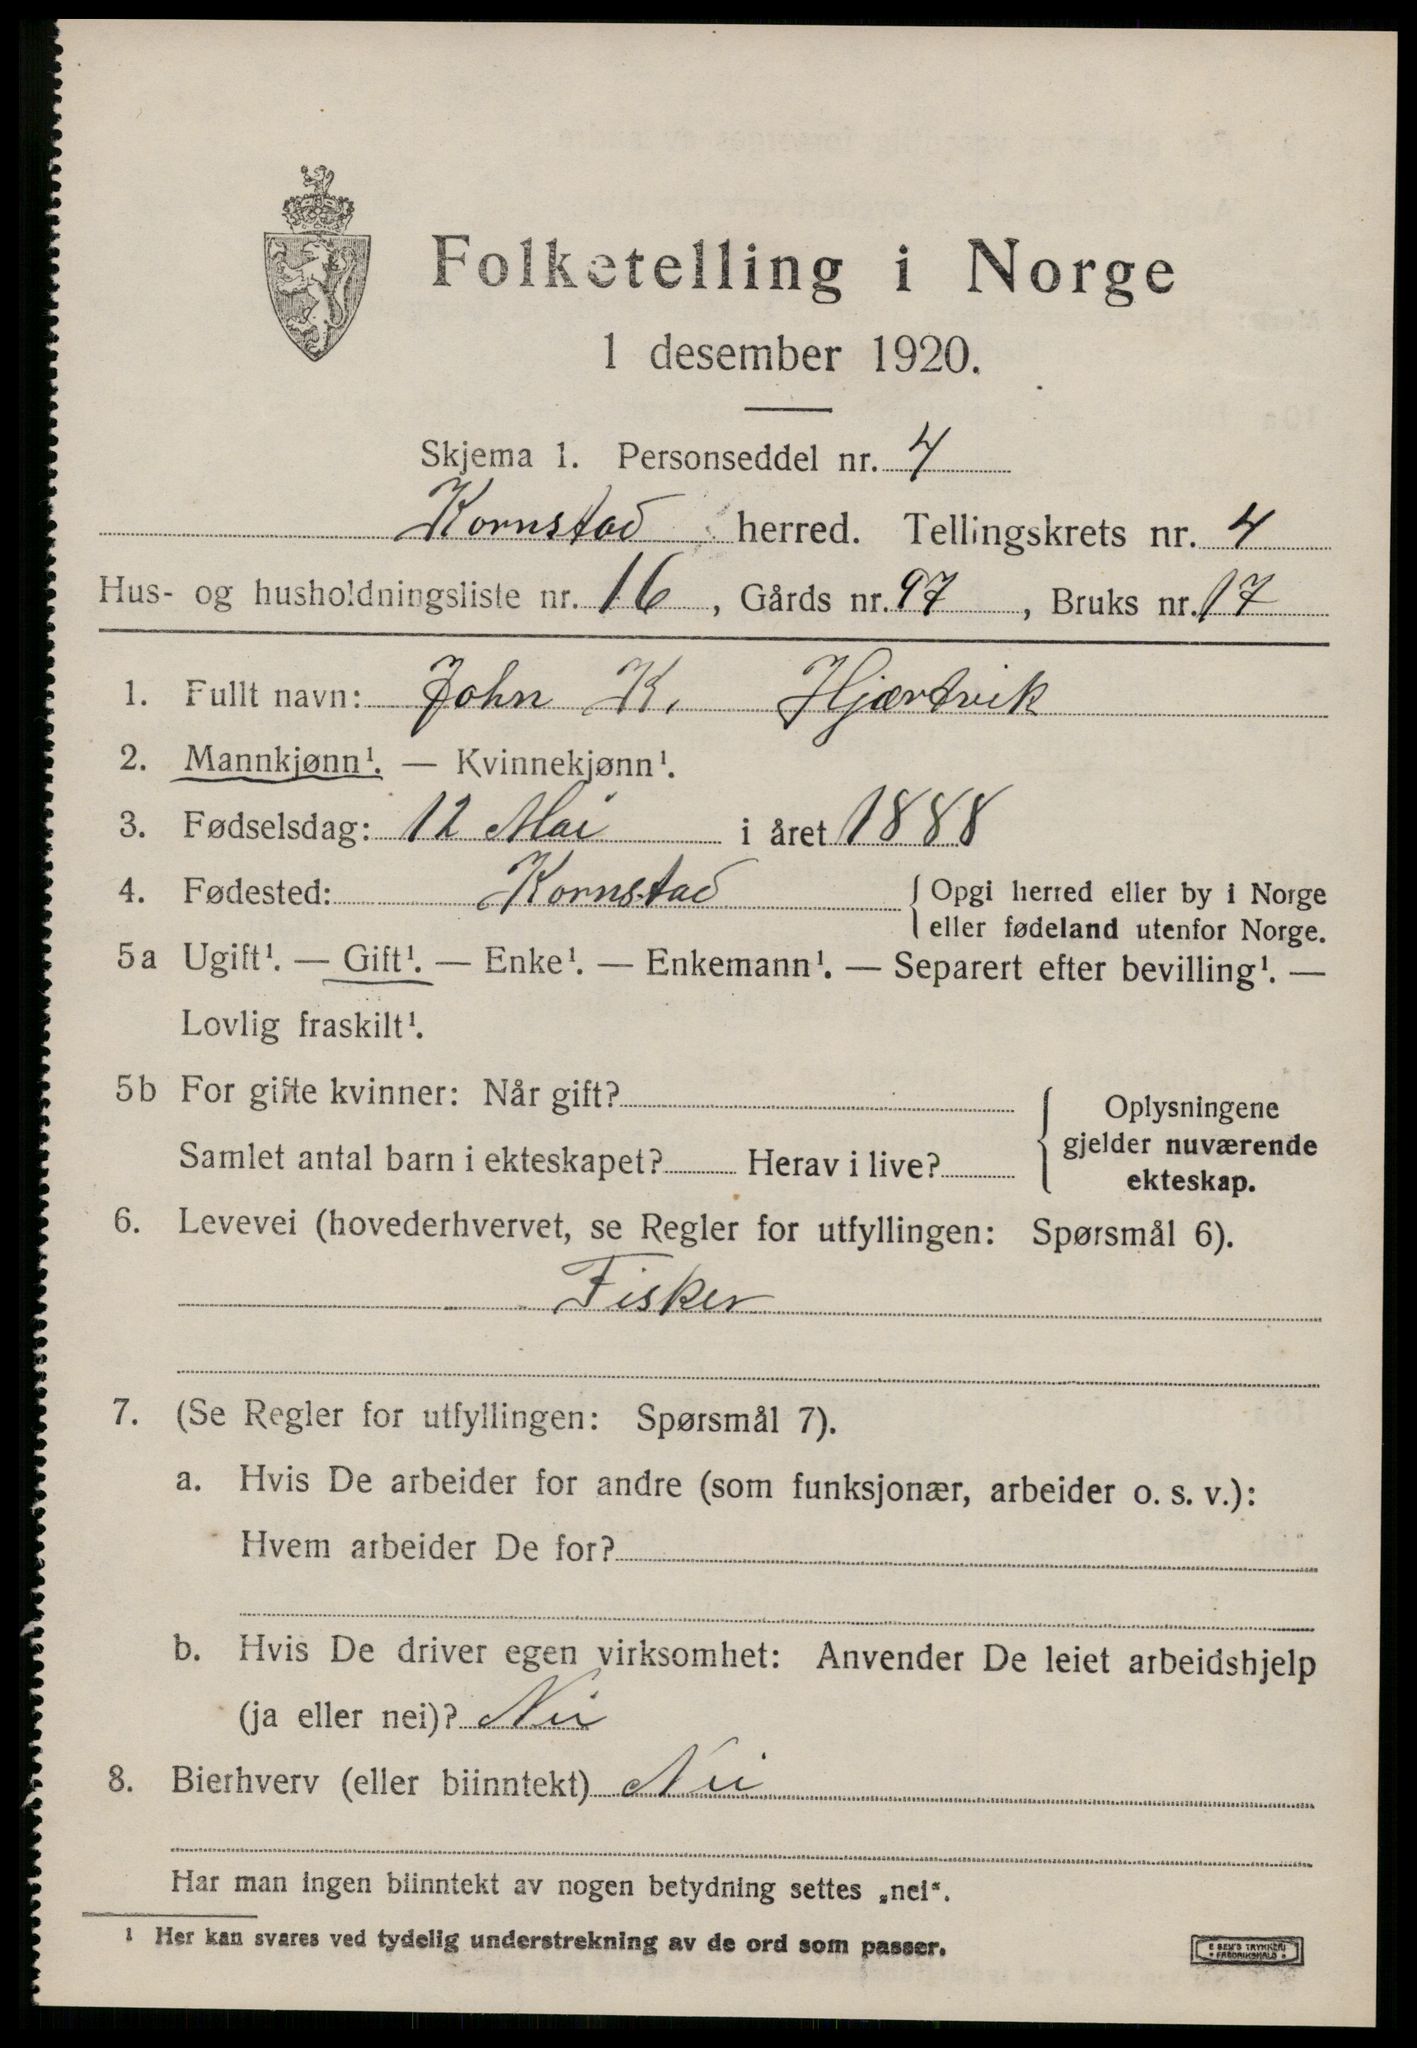 Folketelling i Norge
1 desember 1920.
Skjema 1. Personseddel nr. 4
Kornstad herred. Tellingskrets nr. 4
Hus- og husholdningsliste nr. 16, Gårds nr. 97, Bruks nr. 17
1. Fullt navn: John K. Hjærtvik
2. Mannkjønn¹. — Kvinnekjønn¹.
3. Fødselsdag: 12 Mai i året 1888
4. Fødested: Kornstad { Opgi herred eller by i Norge
eller fødeland utenfor Norge.
5a Ugift¹. — Gift¹. — Enke¹. — Enkemann¹. — Separert efter bevilling¹. —
Lovlig fraskilt¹.
5b For gifte kvinner: Når gift?
Samlet antal barn i ekteskapet? Herav i live?
{ Oplysningene
gjelder nuværende
ekteskap.
6. Levevei (hovederhvervet, se Regler for utfyllingen: Spørsmål 6).
Fisker
7. (Se Regler for utfyllingen: Spørsmål 7).
a. Hvis De arbeider for andre (som funksjonær, arbeider o. s. v.):
Hvem arbeider De for?
b. Hvis De driver egen virksomhet: Anvender De leiet arbeidshjelp
(ja eller nei)? Nei
8. Bierhverv (eller biinntekt) Nei
Har man ingen biinntekt av nogen betydning settes „nei“.
¹ Her kan svares ved tydelig understrekning av de ord som passer.
E SEM'S TRYKKERI
FREDRIKSHALD